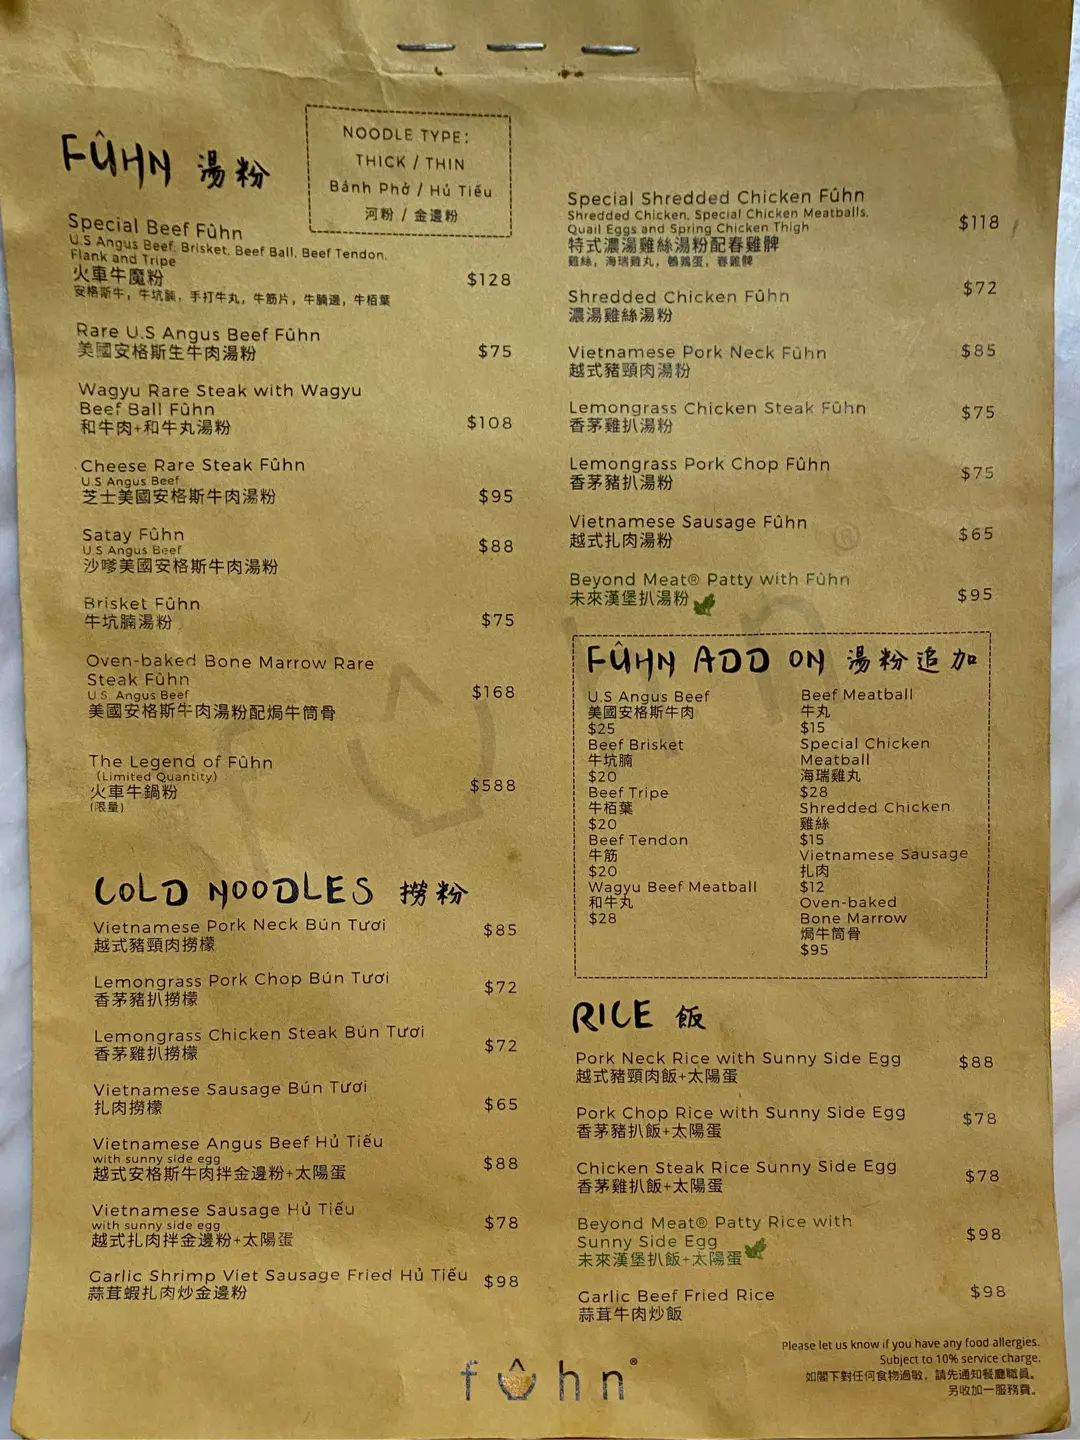 FÛHN 湯粉
NOODLE TYPE:
THICK / THIN
Bánh Phở / Hủ Tiếu
河粉 / 金邊粉
Special Beef Fûhn
U.S Angus Beef, Brisket, Beef Ball, Beef Tendon,
Flank and Tripe
火車牛魔粉 $128
安格斯牛，牛坑腩，手打牛丸，牛筋片，牛腩邊，牛栢葉
Rare U.S Angus Beef Fûhn
美國安格斯生牛肉湯粉 $75
Wagyu Rare Steak with Wagyu
Beef Ball Fûhn
和牛肉+和牛丸湯粉 $108
Cheese Rare Steak Fûhn
U.S Angus Beef
芝士美國安格斯牛肉湯粉 $95
Satay Fûhn
U.S Angus Beef $88
沙嗲美國安格斯牛肉湯粉
Brisket Fûhn
牛坑腩湯粉 $75
Oven-baked Bone Marrow Rare
Steak Fûhn
U.S. Angus Beef $168
美國安格斯牛肉湯粉配焗牛筒骨
The Legend of Fûhn
(Limited Quantity)
火車牛鍋粉 $588
(限量)
COLD NOODLES 撈粉
Vietnamese Pork Neck Bún Tươi $85
越式豬頸肉撈檬
Lemongrass Pork Chop Bún Tươi $72
香茅豬扒撈檬
Lemongrass Chicken Steak Bún Tươi
香茅雞扒撈檬 $72
Vietnamese Sausage Bún Tươi
扎肉撈檬 $65
Vietnamese Angus Beef Hủ Tiếu
with sunny side egg $88
越式安格斯牛肉拌金邊粉+太陽蛋
Vietnamese Sausage Hủ Tiếu
with sunny side egg $78
越式扎肉拌金邊粉+太陽蛋
Garlic Shrimp Viet Sausage Fried Hủ Tiếu $98
蒜茸蝦扎肉炒金邊粉
Special Shredded Chicken Fûhn
Shredded Chicken, Special Chicken Meatballs,
Quail Eggs and Spring Chicken Thigh $118
特式濃湯雞絲湯粉配春雞髀
雞絲，海瑞雞丸，鵪鶉蛋，春雞髀
Shredded Chicken Fûhn $72
濃湯雞絲湯粉
Vietnamese Pork Neck Fûhn $85
越式豬頸肉湯粉
Lemongrass Chicken Steak Fûhn $75
香茅雞扒湯粉
Lemongrass Pork Chop Fûhn $75
香茅豬扒湯粉
Vietnamese Sausage Fûhn $65
越式扎肉湯粉
Beyond Meat® Patty with Fûhn
未來漢堡扒湯粉 $95
FÛHN ADD ON 湯粉追加
U.S Angus Beef
美國安格斯牛肉
$25
Beef Brisket
牛坑腩
$20
Beef Tripe
牛栢葉
$20
Beef Tendon
牛筋
$20
Wagyu Beef Meatball
和牛丸
$28
Beef Meatball
牛丸
$15
Special Chicken
Meatball
海瑞雞丸
$28
Shredded Chicken
雞絲
$15
Vietnamese Sausage
扎肉
$12
Oven-baked
Bone Marrow
焗牛筒骨
$95
RICE 飯
Pork Neck Rice with Sunny Side Egg $88
越式豬頸肉飯+太陽蛋
Pork Chop Rice with Sunny Side Egg $78
香茅豬扒飯+太陽蛋
Chicken Steak Rice Sunny Side Egg $78
香茅雞扒飯+太陽蛋
Beyond Meat® Patty Rice with
Sunny Side Egg $98
未來漢堡扒飯+太陽蛋
Garlic Beef Fried Rice $98
蒜茸牛肉炒飯
Please let us know if you have any food allergies.
Subject to 10% service charge.
如閣下對任何食物過敏，請先通知餐廳職員。
另收加一服務費。
fûhn®